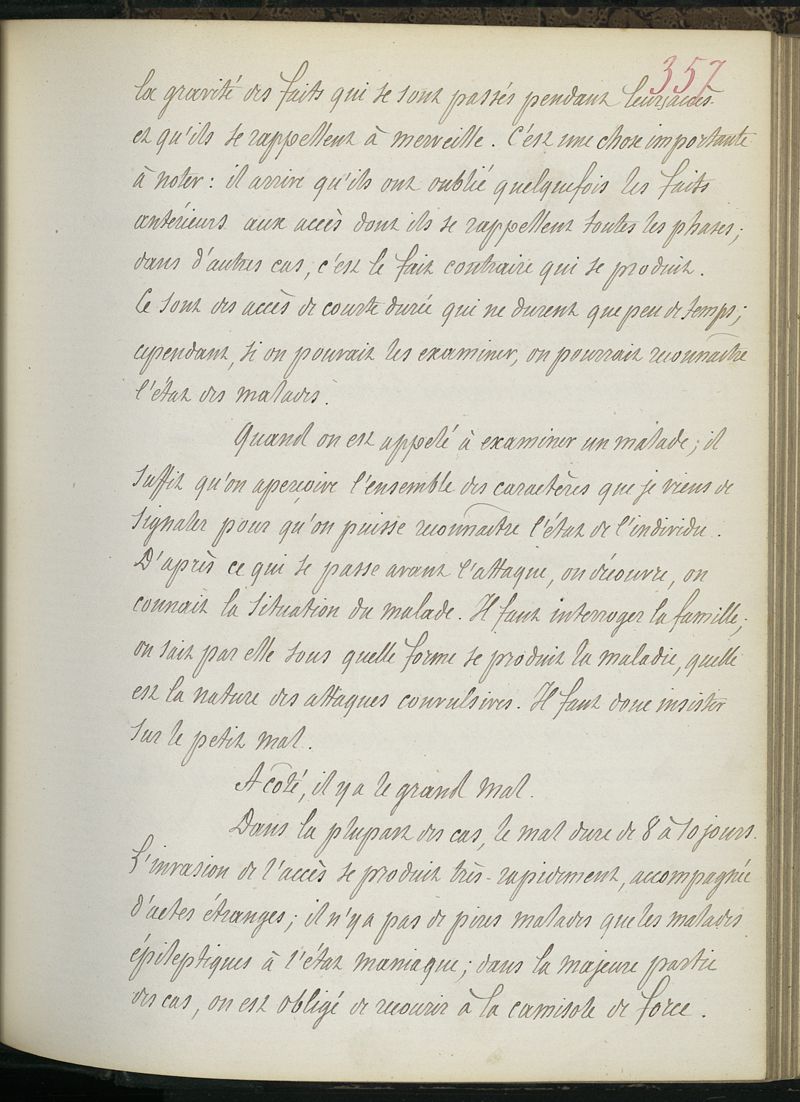 357
la gravité des faits qui se sont passés pendant leurs accès
et qu'ils se rappellent à merveille. C'est une chose importante
à noter : il arrive qu'ils ont oublié quelquefois les faits
antérieurs aux accès dont ils se rappellent toutes les phases ;
dans d'autres cas, c'est le fait contraire qui se produit.
Ce sont des accès de courte durée qui ne durent que peu de temps ;
cependant, si on pouvait les examiner, on pourrait reconnaître
l'état des malades.
Quand on est appelé à examiner un malade ; il
suffit qu'on aperçoive l'ensemble des caractères que je viens de
signaler pour qu'on puisse reconnaître l'état de l'individu.
D'après ce qui se passe avant l'attaque, on découvre, on
connait la situation du malade. Il faut interroger la famille ;
on sait par elle sous quelle forme se produit la maladie, quelle
est la nature des attaques convulsives. Il faut donc insister
sur le petit mal.
A côté, il y a le grand mal.
Dans la plupart des cas, le mal dure de 8 à 10 jours.
L'invasion de l'accès se produit très-rapidement, accompagnée
d'actes étranges ; il n'y a pas de pires malades que les malades
épileptiques à l'état maniaque ; dans la majeure partie
des cas, on est obligé de recourir à la camisole de force.